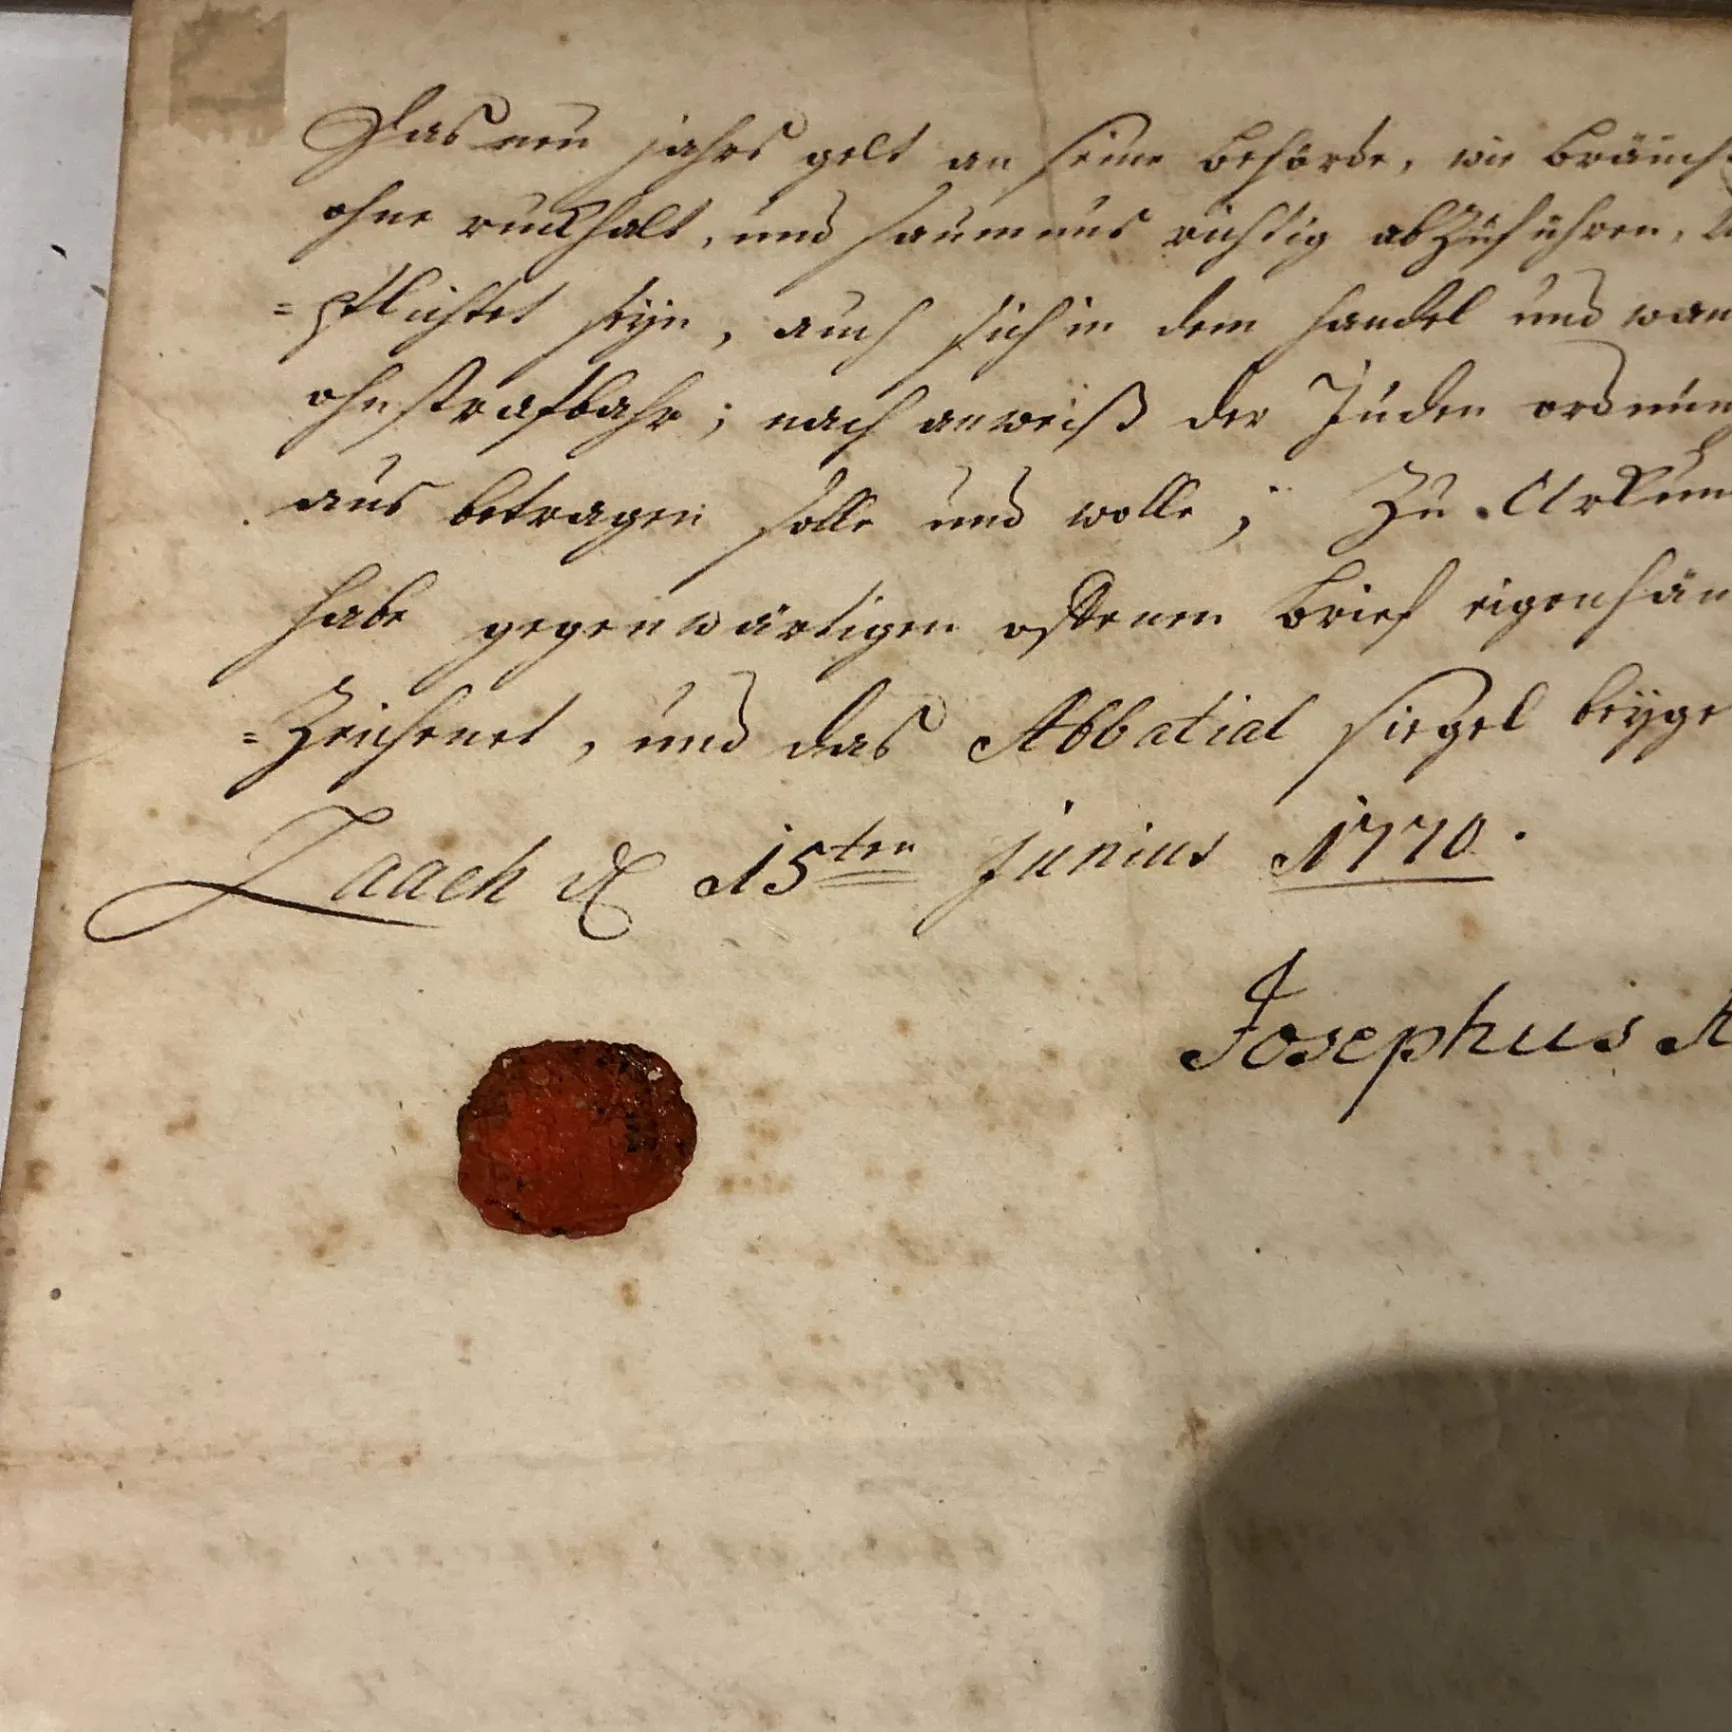 Das neu jahrs gelt an seine behörde, wie bräuch
ohne ruckhalt, und saumnus richtig abzuführen,
=pflichtet seÿn, auch sich in dem handel und wan
ohnstrafbahr; nach anweiß der Juden ordnun
aus betragen solle und wolle; Zu Urkun
habe gegenwärtigen offenen brief eigenhän
=zeichnet, und das Abbatial siegel beÿge
Laach d 15ten junius 1770.
Josephus A